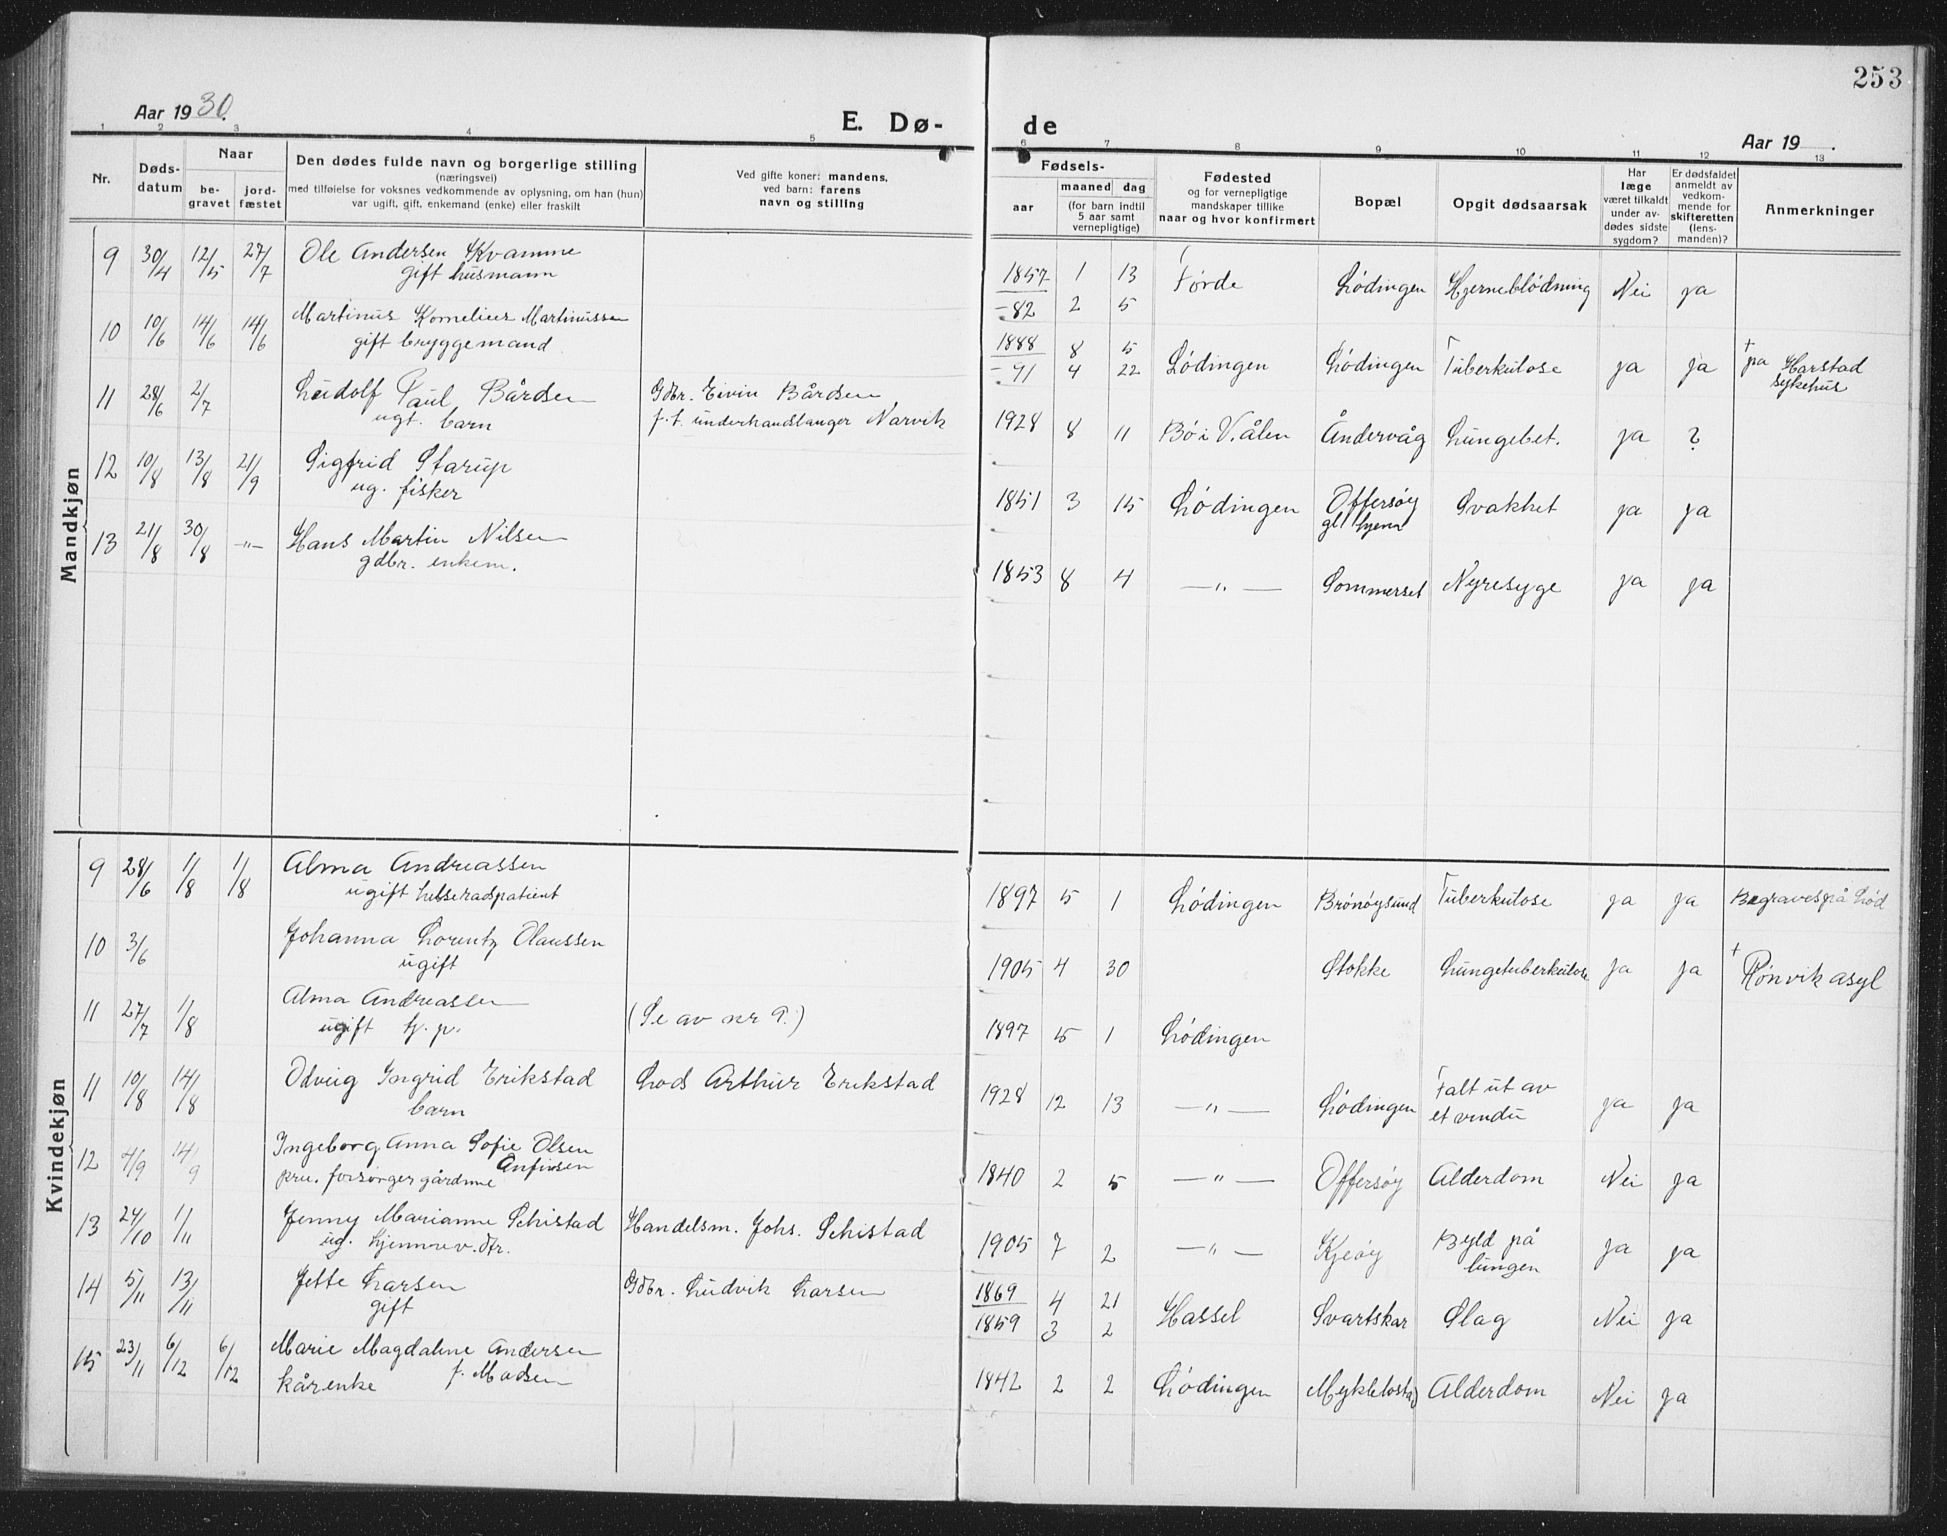 253
Aar 1930.
E. Dø-
de
Aar 19 .
1 2 3 4 5 6 7 8 9 10 11 12 13
Nr.
Døds-
datum
Naar
be-
gravet
jord-
fæstet
Den dødes fulde navn og borgerlige stilling
(næringsvei)
med tilføielse for voksnes vedkommende av oplysning, om han (hun)
var ugift, gift, enkemand (enke) eller fraskilt
Ved gifte koner: mandens,
ved barn: farens
navn og stilling
Fødsels-
aar
maaned dag
(for barn indtil
5 aar samt
vernepligtige)
Fødested
og for vernepligtige
mandskaper tillike
naar og hvor konfirmert
Bopæl
Opgit dødsaarsak
Har
læge
været tilkaldt
under av-
dødes sidste
sygdom?
Er dødsfaldet
anmeldt av
vedkom-
mende for
skifteretten
(lens-
manden)?
Anmerkninger
Mandkjøn
9 30/4 12/5 27/7 Ole Andersen Kvamme
gift husmann
1857 1 13 Førde Lødingen Hjerneblødning Nei ja
-82 2 5
10 10/6 14/6 14/6 Martinus Kornelius Martinussen
gift bryggemand
1888 8 5
-91 4 22 Lødingen Lødingen Tuberkulose ja ja + på Harstad
sykehus
11 28/6 2/7 Ludolf Paul Bårdsen
ugt. barn
Gdbr. Eivin Bårdsen
f. t. underhandlanger Narvik
1928 8 11 Bø i V.ålen Åndervåg Lungebet. ja ?
12 10/8 13/8 21/9 Sigfrid Starup
ug. fisker
1851 3 15 Lødingen Offersøy
gl. hjem Svakhet ja ja
13 21/8 30/8 -"- Hans Martin Nilsen
gdbr. enkem.
1853 8 4 —"— Sommerset Nyresyge ja ja
Kvindekjøn
9 28/6 1/8 1/8 Alma Andreassen
ugift helseradspatient
1897 5 1 Lødingen Brønøysund Tuberkulose ja ja Begraves på Lød
10 3/6 Johanna Lorentz Olaussen
ugift
1905 4 30 Stokke Lungetuberkulose ja ja + Rønvik asyl
11 27/7 1/8 Alma Andreassen
ugift tj. p.
(Se av nr 9.)
1897 5 1 Lødingen
11 10/8 14/8 Odveig Ingrid Erikstad
barn
Lods Arthur Erikstad
1928 12 13 —"— Lødingen Falt ut av
et vindu ja ja
12 4/9 14/9 Ingeborg Anna Sofie Olsen
Anfinsen
forsørger gårdme
1840 2 5 —"— Offersøy Alderdom Nei ja
13 24/10 1/11 Jenny Marianne Schistad
ug. hjemmev. dtr.
Handelsm. Johs. Schistad
1905 7 2 —"— Kjeøy Byld på
lungen ja ja
14 5/11 13/11 Jette Larsen
gift
Gdbr. Ludvik Larsen
1869 4 21
1859 3 2 Hassel Svartskar Slag Nei ja
15 23/11 6/12 6/12 Marie Magdalene Andersen
kårenke f. Madsen
1842 2 2 Lødingen Myklebostad Alderdom Nei ja